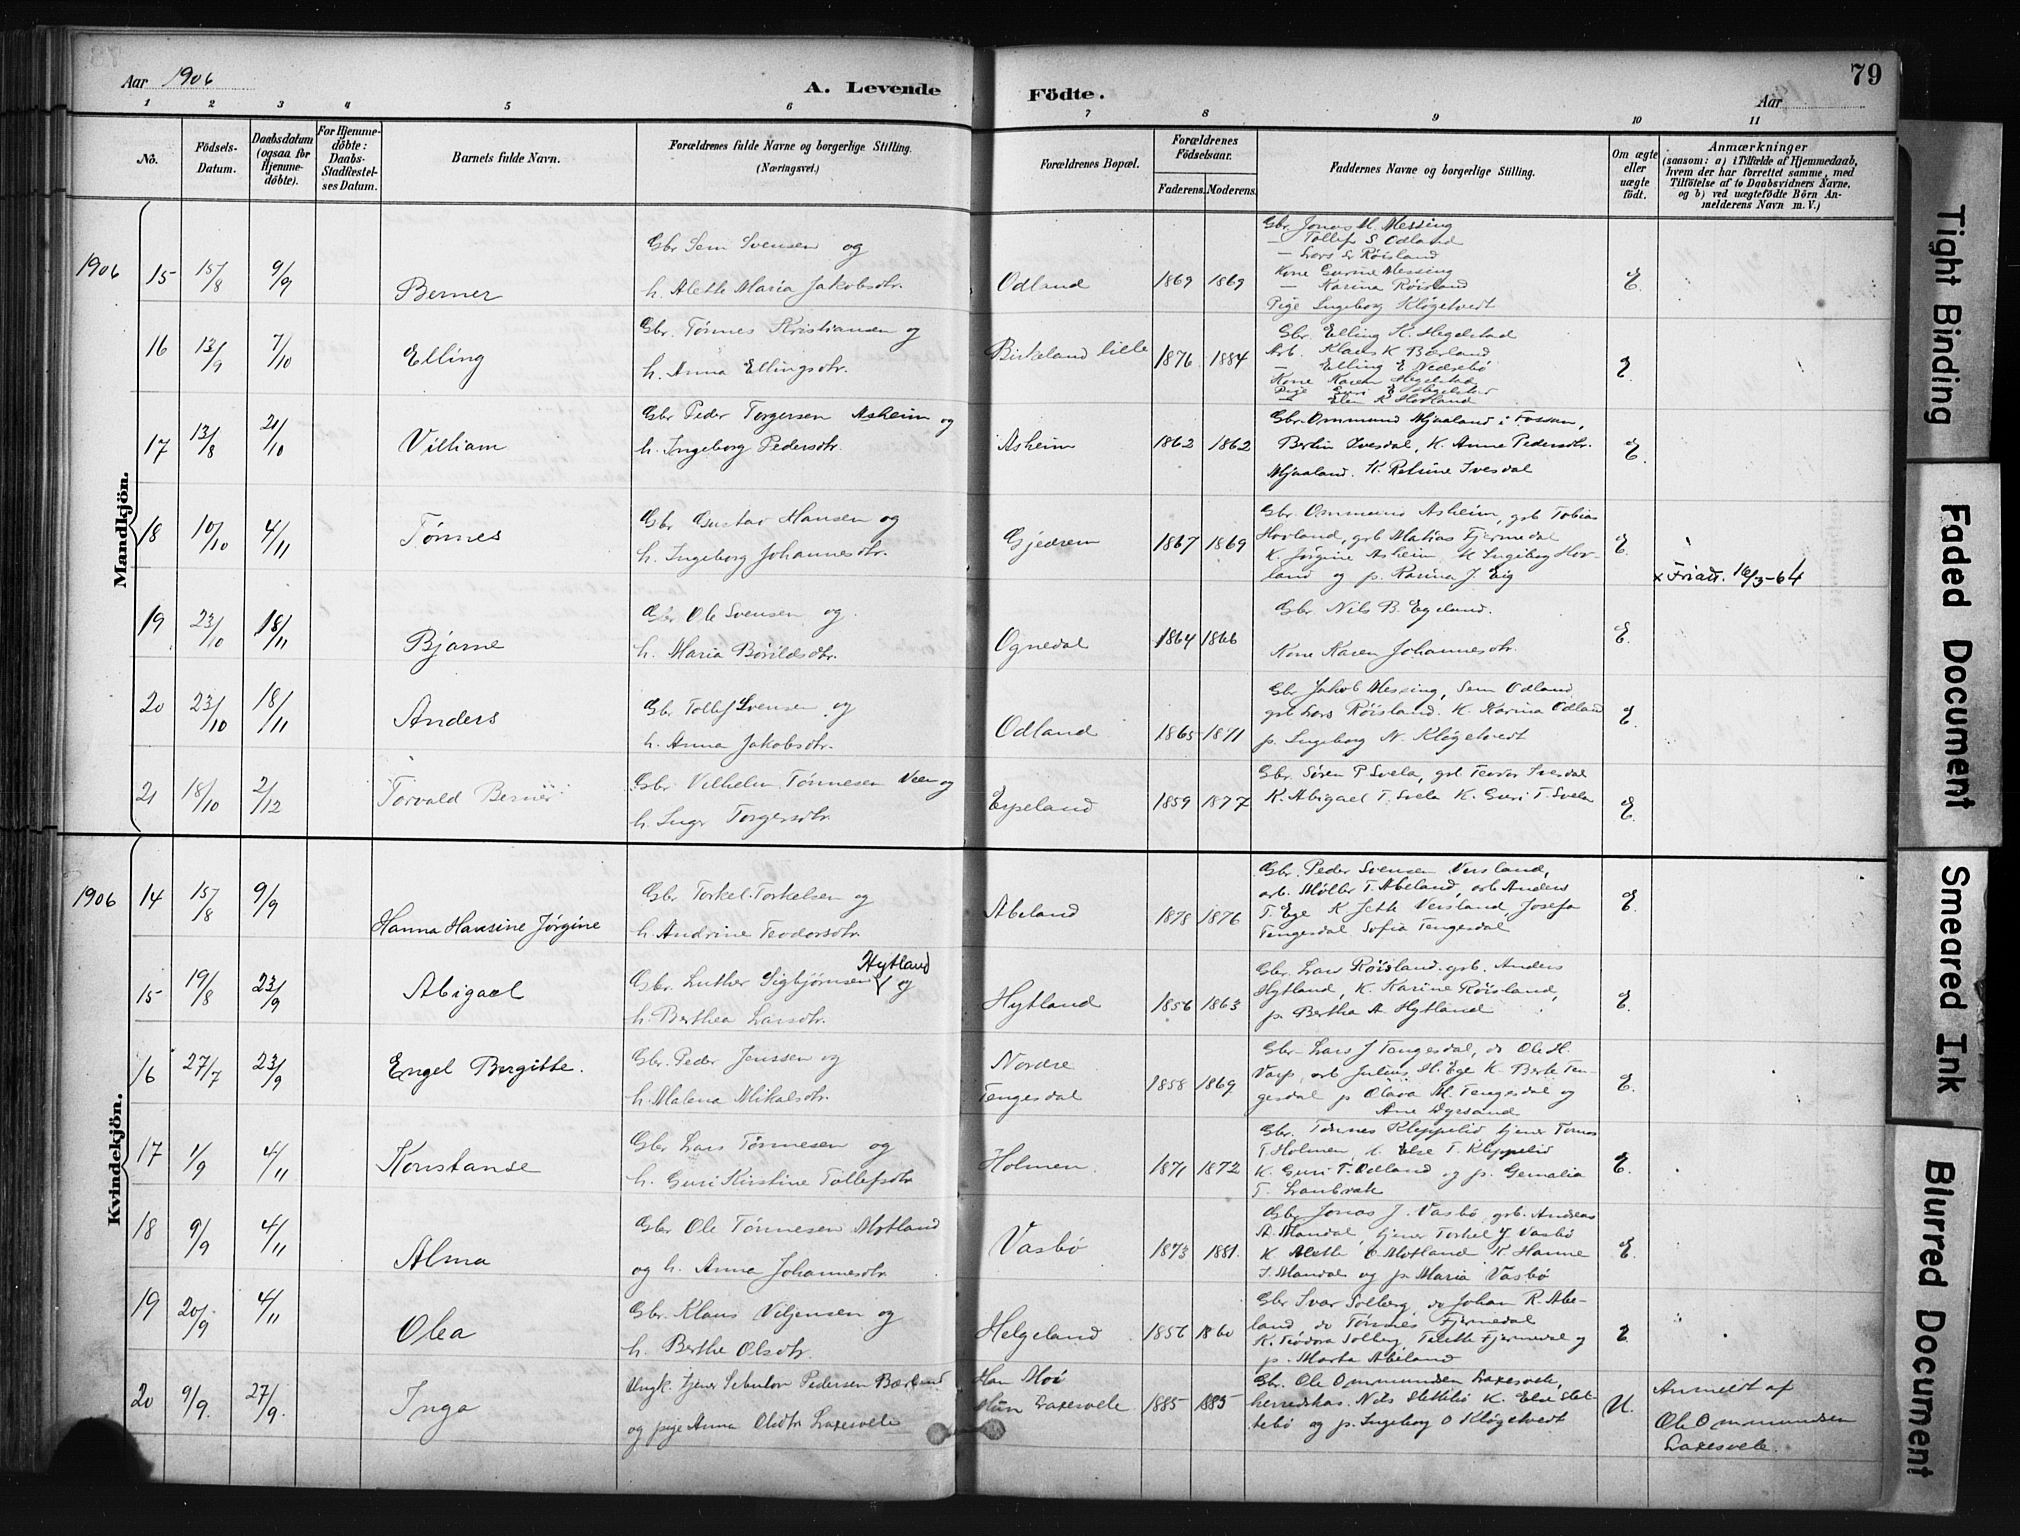 79
Aar 1906
A. Levende Födte.
Aar
1 2 3 4 5 6 7 8 9 10 11
No.
Födsels-Datum.
Daabsdatum (ogsaa for Hjemme-döbte).
For Hjemme-döbte: Daabs-Stadfestel-ses Datum.
Barnets fulde Navn.
Forældrenes fulde Navne og borgerlige Stilling.
(Næringsvei.)
Forældrenes Bopæl.
Forældrenes Födselsaar.
Faderens. Moderens.
Faddernes Navne og borgerlige Stilling.
Om ægte eller uægte födt.
Anmærkninger
(saasom: a) i Tilfælde af Hjemmedaab,
hvem der har forrettet samme, med
Tilföielse af to Daabsvidners Navne,
og b) ved uægtefödte Börn An-
melderens Navn m. V.)
Mandkjön.
1906 15 15/8 9/9 Berner
Gbr Sem Svensen og
h. Alette Maria Jakobsdtr.
Odland 1869 1869
Gbr Jonas M. Messing
— Tollef S. Odland
— Lars L Røisland
Kone Gurine Messing
— Karina Røisland
Pige Ingeborg Kløgetvedt
E.
16 13/9 7/10 Elling
Gbr. Tønnes Kristiansen og
h. Anna Ellingsdtr.
Birkeland lille 1876 1884
Gbr. Elling K. Hegelstad
Arb. Klaus K Børland
— Elling E Nedrebø
Kone Karen Hegelstad
Pige Hegelstad
— Elen K Hovland
E.
17 13/8 21/10 Villiam
Gbr Peder Torgersen Asheim og
h. Ingeborg Pedersdtr.
Asheim 1862 1862
Gbr. Ommund Mjaaland i Fossan,
Bertin Ivesdal, K. Anne Pedersdtr.
Mjaaland. K. Retrine Ivesdal
E.
18 10/10 4/11 Tønnes
Gbr Gustav Hansen og
h. Ingeborg Johannesdtr.
Gjedrem 1867 1869
Gbr. Ommund Asheim, gbr Tobias
Hovland, gbr Matias Fjermedal
K. Jørgine Asheim, K Ingeborg Hov-
land og p. Karina J. Eig
E.
x Friatt. 16/3-64
19 23/10 18/11 Bjarne
Gbr Ole Svensen og
h. Maria Børildsdtr.
Ognedal 1864 1866
Gbr. Nils B. Egeland.
Kone Karen Johannesdtr.
E
20 23/10 18/11 Anders
Gbr Tollef Svensen og
h. Anna Jakobsdtr.
Odland 1865 1871
Gbr Jakob Messing, Sem Odland,
gbr Lars Røisland. K. Karina Odland
p. Ingeborg N. Kløgetvedt
E.
21 18/10 2/12 Torvald Bernér
Gbr Vilhelm Tønnesen Veen og
h. Inger Torgersdtr.
Espeland 1859 1877
Gbr. Søren P Svela, gbr Teodor Ivesdal
K. Abigael T. Svela K. Guri T. Svela
E.
Kvindekjön.
1906 14 15/8 9/9 Hanna Hansine Jørgine
Gbr Torkel Torkelsen og
h. Andrine Teodorsdtr.
Abeland 1878 1876
Gbr. Peder Svensen Versland,
arb. Møller T. Abeland, arb Anders
T. Ege K Jette Versland, Josefa
Tengesdal Sofia Tengesdal
E.
15 19/8 23/9 Abigael
Gbr. Luther Sigbjørnsen Hytland og
h. Berthea Larsdtr.
Hytland 1856 1863
Gbr. Lars Røisland gbr. Anders
Hytland, K. Karine Røisland,
p. Bertha A Hytland
E.
16 27/7 23/9 Engel Bergitte.
Gbr. Peder Jenssen og
h. Malena Mikalsdtr.
Nordre
Tengesdal 1858 1869
Gbr Lars J Tengesdal, do Ole H.
Varp, arb Julius H. Ege K. Berte Ten-
gesdal p Olava M. Tengesdal og
Ane Dyrsand
E.
17 1/9 4/11 Konstanse
Gbr Lars Tønnesen og
h. Guri Kirstine Tollefsdtr
Holmen. 1871 1872
Gbr. Tønnes Kleppelid tjener Tønnes
T Holmen, K. Else T. Kleppelid
K. Guri T. Odland og p. Gemalia
T. Laubrak
E.
18 9/9 4/11 Alma
Gbr Ole Tønnesen Motland
og h. Anna Johannesdtr.
Vasbø 1873 1881.
Gbr Jonas J. Vasbø, gbr. Andreas
A. Mandal, tjener Torkel J Vasbø
K Alette O Motland K Hanne
J. Mandal og p. Maria Vasbø
E.
19 20/9 4/11 Olea
Gbr. Klaus Viljensen og
h. Berthe Olsdtr.
Helgeland 1856 1860
Gbr Ivar Solberg, do Johan R. Abe-
land do Tønnes Fjermedal
K. Teodora Solberg, Talette Fjermedal og
p. Marta Abeland
E.
20 9/9. 27/9. Inga
Ungk. tjener Sebulon Pedersen Bærland
og pige Anna Olsdtr Laxesvele
Han Moi
Hun Laxesvele 1885 1885
Gbr. Ole Ommundsen Laxesvele,
herredskas. Nils Stettebø K. Else Stet-
tebø og p. Ingeborg O Kløgetvedt
U.
Anmeldt af
Ole Ommundsen
Laxesvele.
Tight Binding
Faded Document
Smeared Ink
Blurred Document